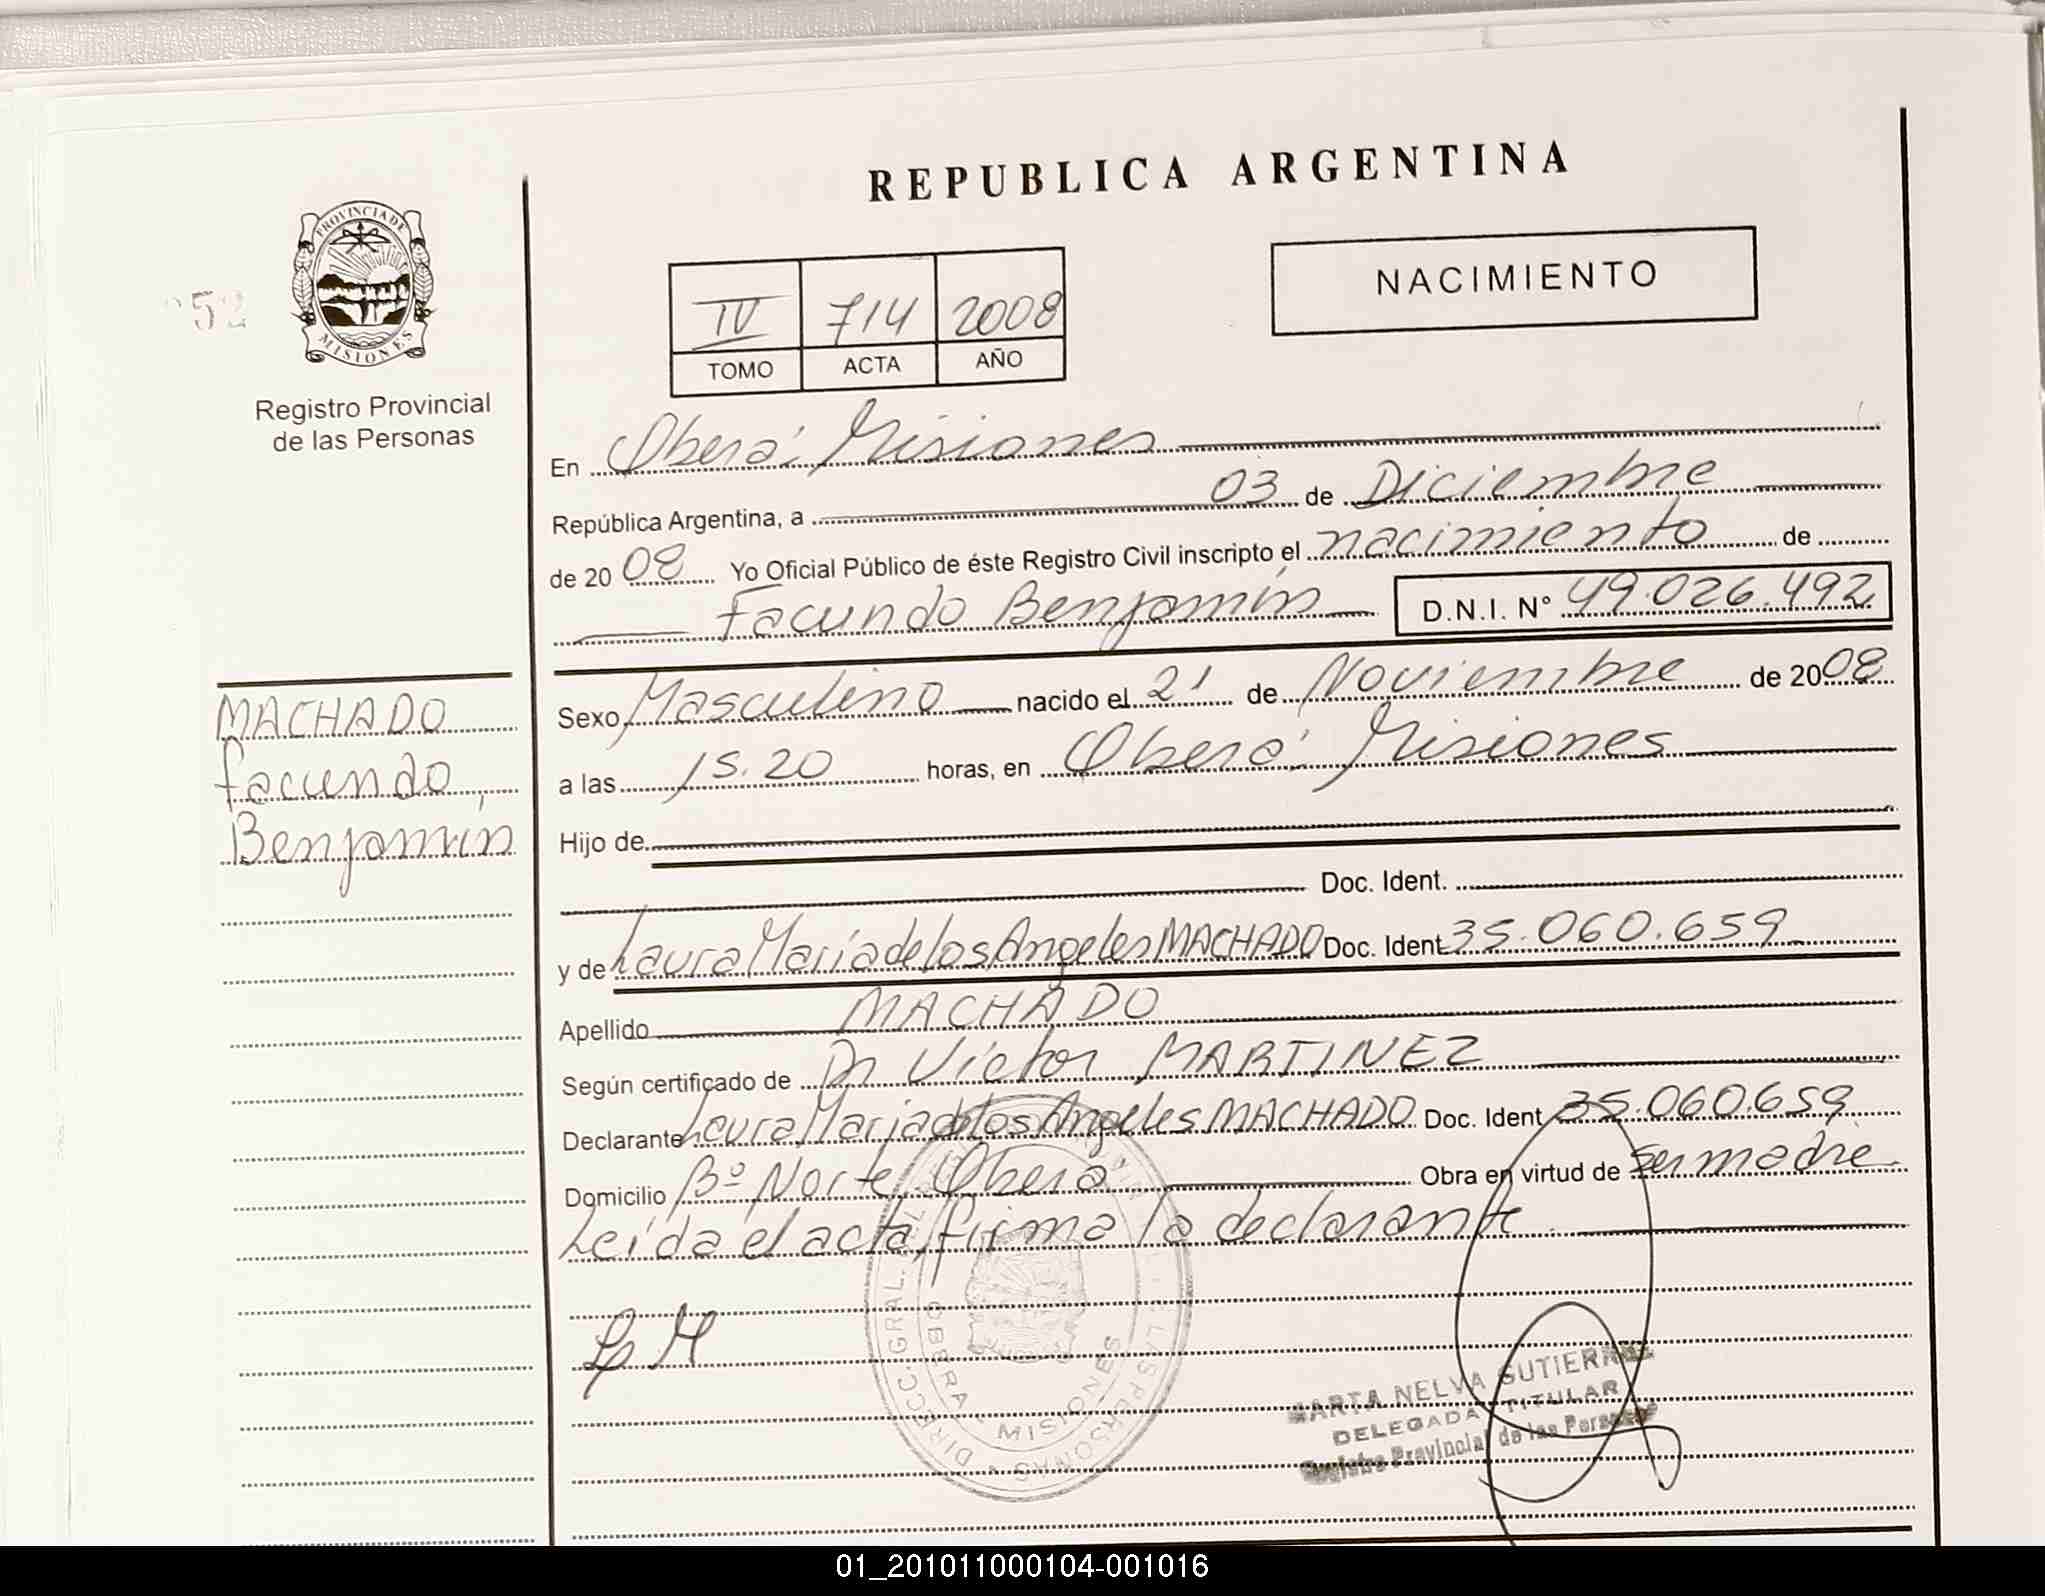 REPUBLICA ARGENTINA
PROVINCIA DE
MISIONES
52
Registro Provincial
de las Personas
NACIMIENTO
IV 714 2008
TOMO ACTA AÑO
En Oberá: Misiones
República Argentina, a 03 de Diciembre
de 20 08 Yo Oficial Público de éste Registro Civil inscripto el nacimiento de
Facundo Benjamín D.N.I. N° 49.026.492
MACHADO
Facundo,
Benjamín
Sexo Masculino nacido el 21 de Noviembre de 2008
a las 15.20 horas, en Oberá: Misiones
Hijo de
Doc. Ident.
y de Laura María de los Angeles MACHADO Doc. Ident 35.060.659
Apellido MACHADO
Según certificado de Dr Víctor MARTINEZ
Declarante Laura María de los Angeles MACHADO Doc. Ident 35.060.659
Domicilio Bº Norte, Oberá Obra en virtud de ser madre
Leída el acta, firma la declarante.
DIRECC. GRAL. DEL LAS PERSONAS
OBERA
MISIONES
MARTA NELVA GUTIERREZ
DELEGADA TITULAR
Registro Provincial de las Personas
01_201011000104-001016